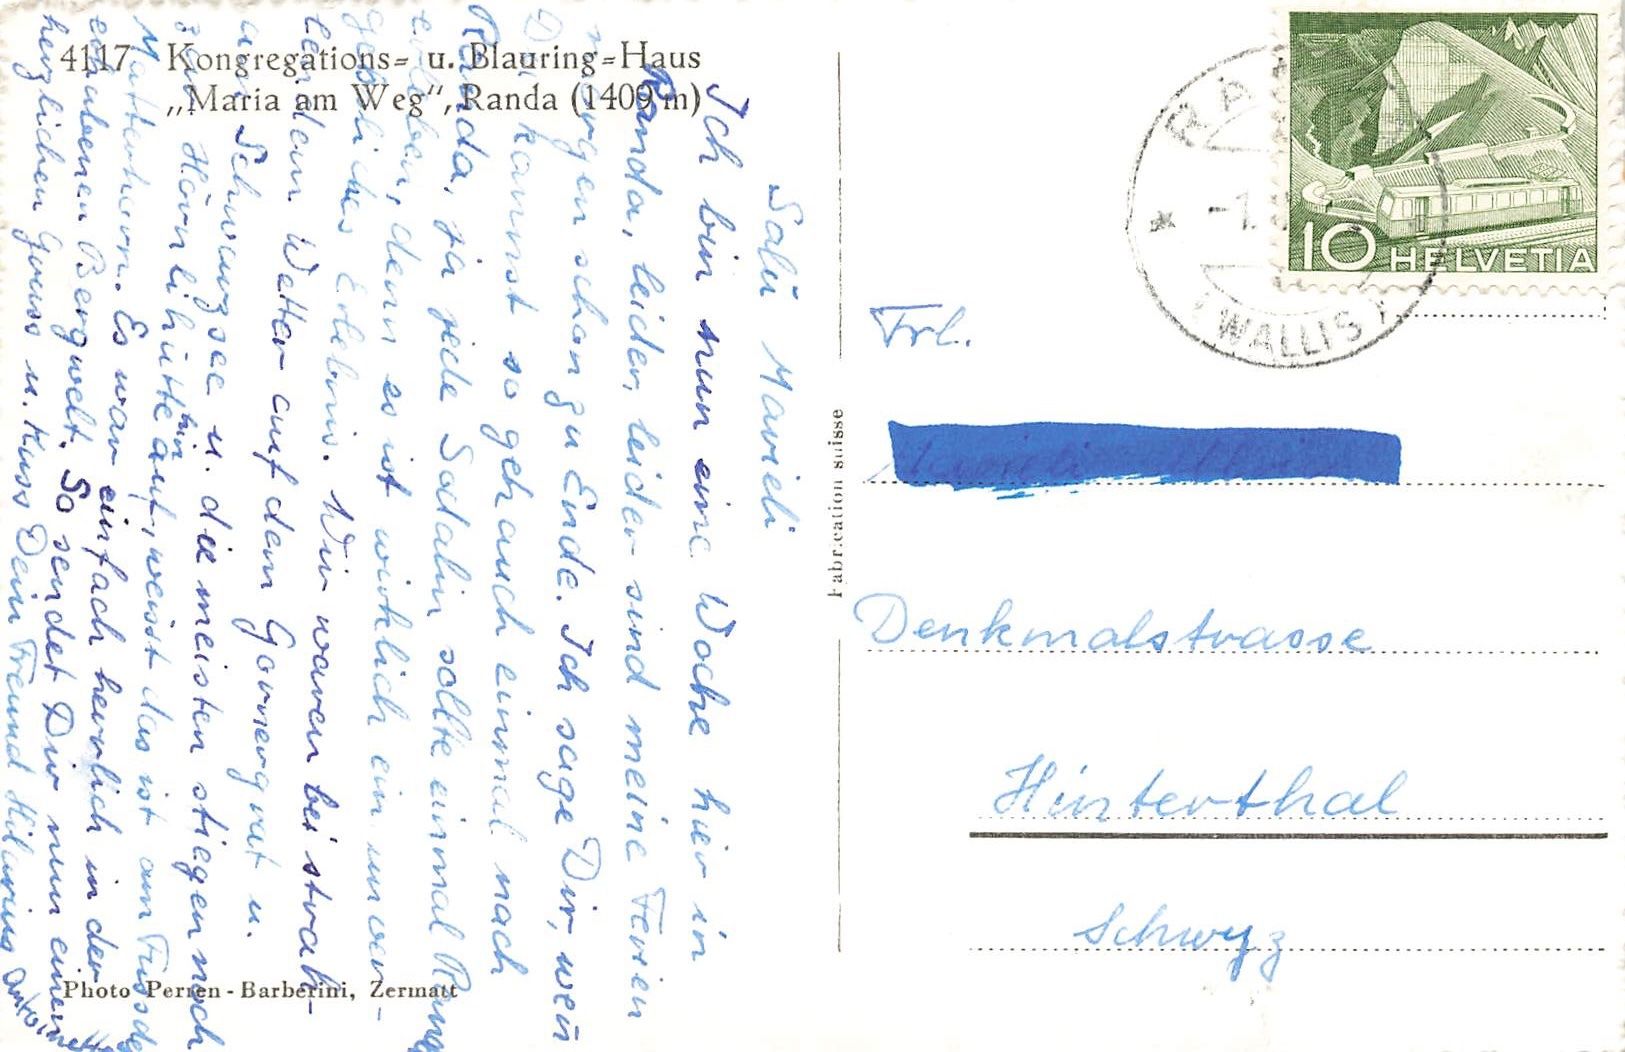 4117 Kongregations= u. Blauring=Haus
„Maria am Weg“, Randa (1409 m)
Salü Mavieli
Ich bin nun eine Woche hier in
Randa, leider, leider, leider sind meine Ferien
morgen schon zu Ende. Ich sage Dir, wen̄
Du kannst so geh auch einmal nach
Randa, ja jede Sodalin sollte einmal Randa
erleben, denn es ist wirklich ein unver-
gessliches Erlebnis. Wir waren bei strah-
lendem Wetter auf dem Gornergrat u.
am Schwarzsee u. die meisten stiegen noch
zur Hörnlihütte hinauf, weisst das ist am Fusse des
Matterhorn. Es war einfach herrlich in der
erhabenen Bergwelt. So sendet Dir nun einen
herzlichen Gruss u. Kuss Dein Freund Hilarius
Photo Perren-Barberini, Zermatt
Fabrication suisse
WALLIS
10 HELVETIA
Frl.
Denkmalstrasse
Hinterthal
Schwyz